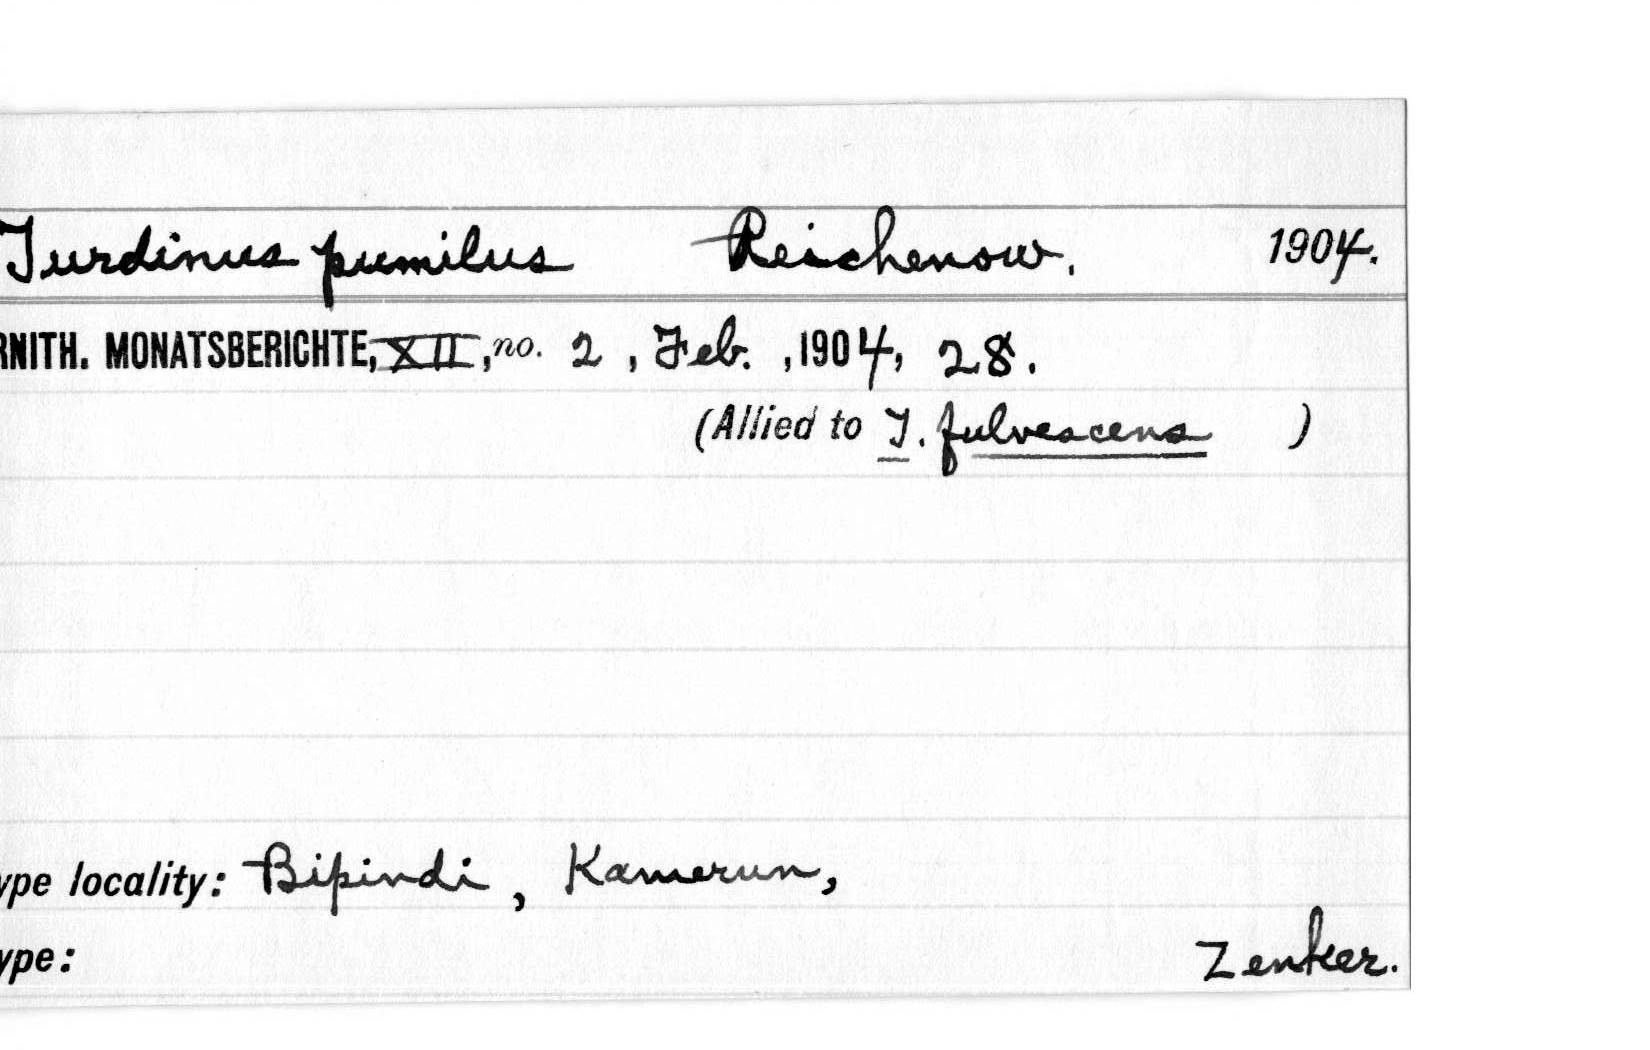 Turdinus pumilus Reichenow. 1904.
RNITH. MONATSBERICHTE, XII, no. 2, Feb., 1904, 28.
(Allied to T. fulvescens )
ype locality: Bipindi, Kamerun,
ype: Zenker.